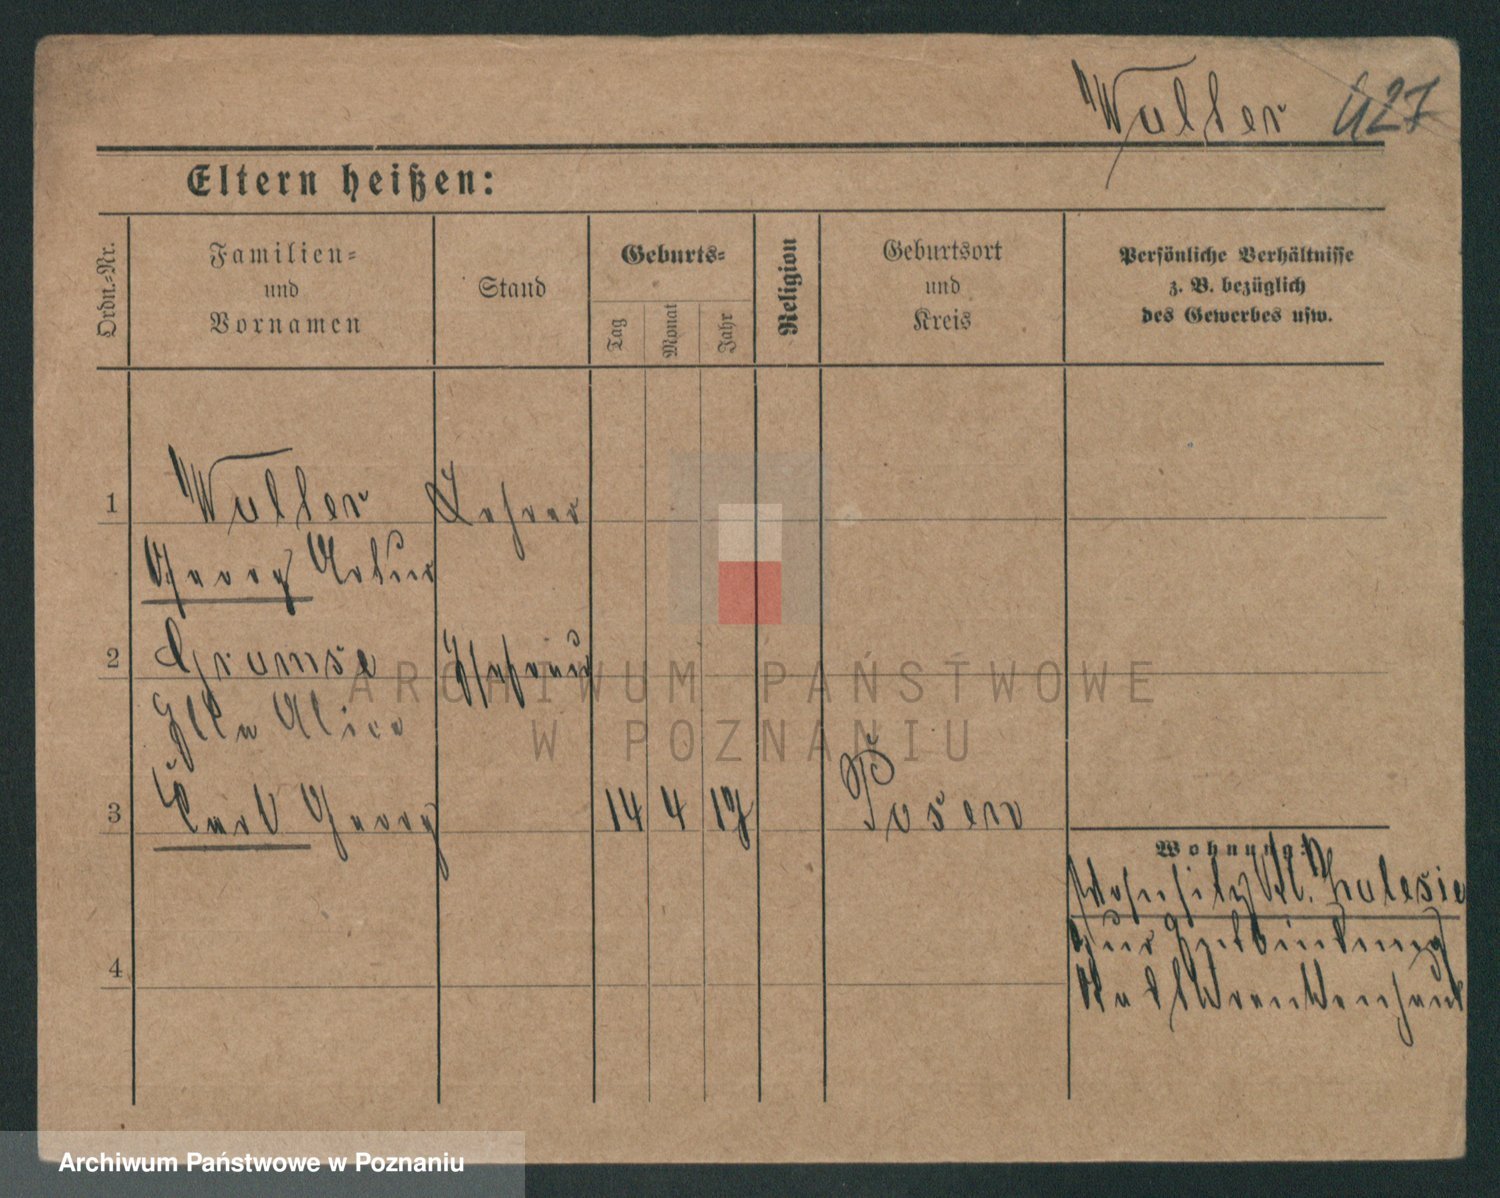 Walter 427
Eltern heißen:
Ordn.-Nr.
Familien-
und
Vornamen
Stand
Geburts-
Tag
Monat
Jahr
Religion
Geburtsort
und
Kreis
Persönliche Verhältnisse
z. B. bezüglich
des Gewerbes usw.
1 Walter Lehrer
Georg Artur
2 Ehefrau
Ella Alice
3 Curt Georg 14 4 17 Posen
4
Wohnung:
Wohnsitz Kl.
zur Entbindung
Krankenhaus
ARCHIWUM PAŃSTWOWE
W POZNANIU
Archiwum Państwowe w Poznaniu